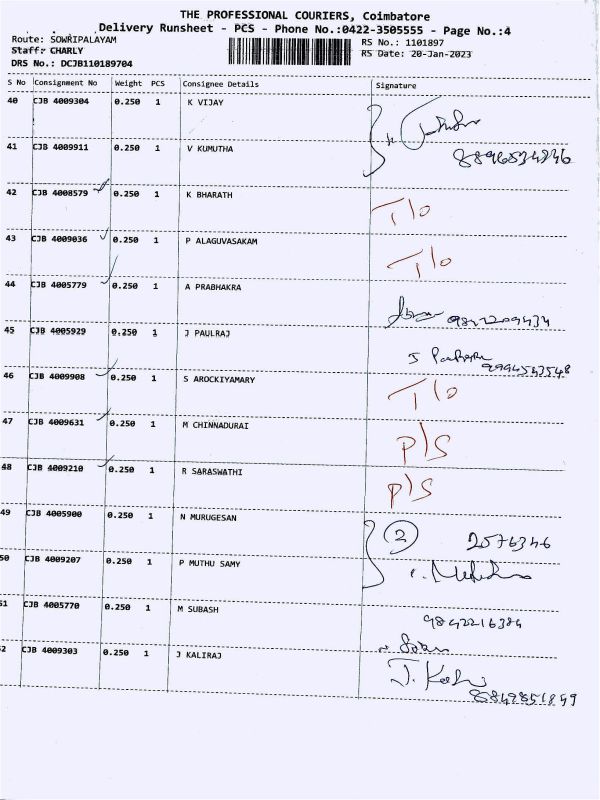 THE PROFESSIONAL COURIERS, Coimbatore
Delivery Runsheet - PCS - Phone No.:0422-3505555 - Page No.:4
Route: SOWRIPALAYAM
RS No.: 1101897
Staff: CHARLY
RS Date: 20-Jan-2023
DRS No.: DCJB110189704
S No Consignment No Weight PCS Consignee Details Signature
40 CJB 4009304 0.250 1 K VIJAY
41 CJB 4009911 0.250 1 V KUMUTHA
42 CJB 4008579 0.250 1 K BHARATH T/o
43 CJB 4009036 0.250 1 P ALAGUVASAKAM T/o
44 CJB 4005779 0.250 1 A PRABHAKRA
45 CJB 4005929 0.250 1 J PAULRAJ
9994543548
46 CJB 4009908 0.250 1 S AROCKIYAMARY T/o
47 CJB 4009631 0.250 1 M CHINNADURAI P/S
48 CJB 4009210 0.250 1 R SARASWATHI P/S
49 CJB 4005900 0.250 1 N MURUGESAN 2 2576346
50 CJB 4009207 0.250 1 P MUTHU SAMY
51 CJB 4005770 0.250 1 M SUBASH 9842216384
52 CJB 4009303 0.250 1 J KALIRAJ